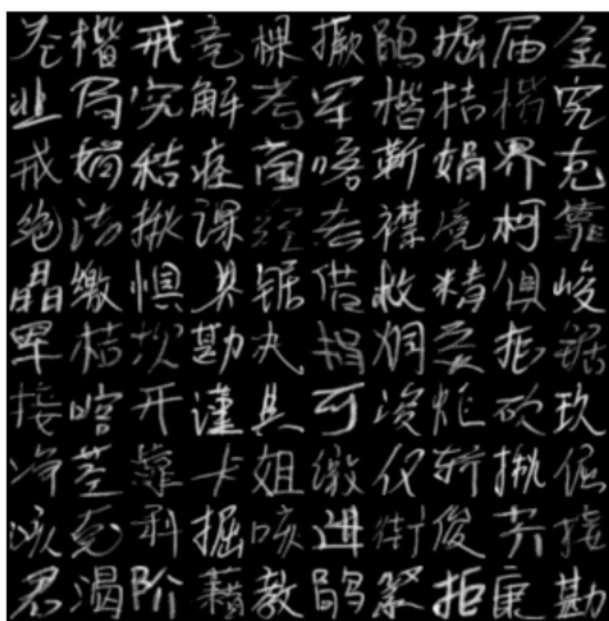 卷楷戒竞棵撅鹃掘届金
业局究解考军楷桔楷究
戒娟秸痉菌嗜靳娟界克
绝洁揪课去襟境柯靠
晶缴惧具锯借救精俱峻
军桔坎勘夬指炯炬锯
接喀开谨具可浚炬砍玖
净茎靠卡姐缴仅斩揪倔
咳克科掘咳进街俊共接
君渴阶藉教鹃紧拒康勘